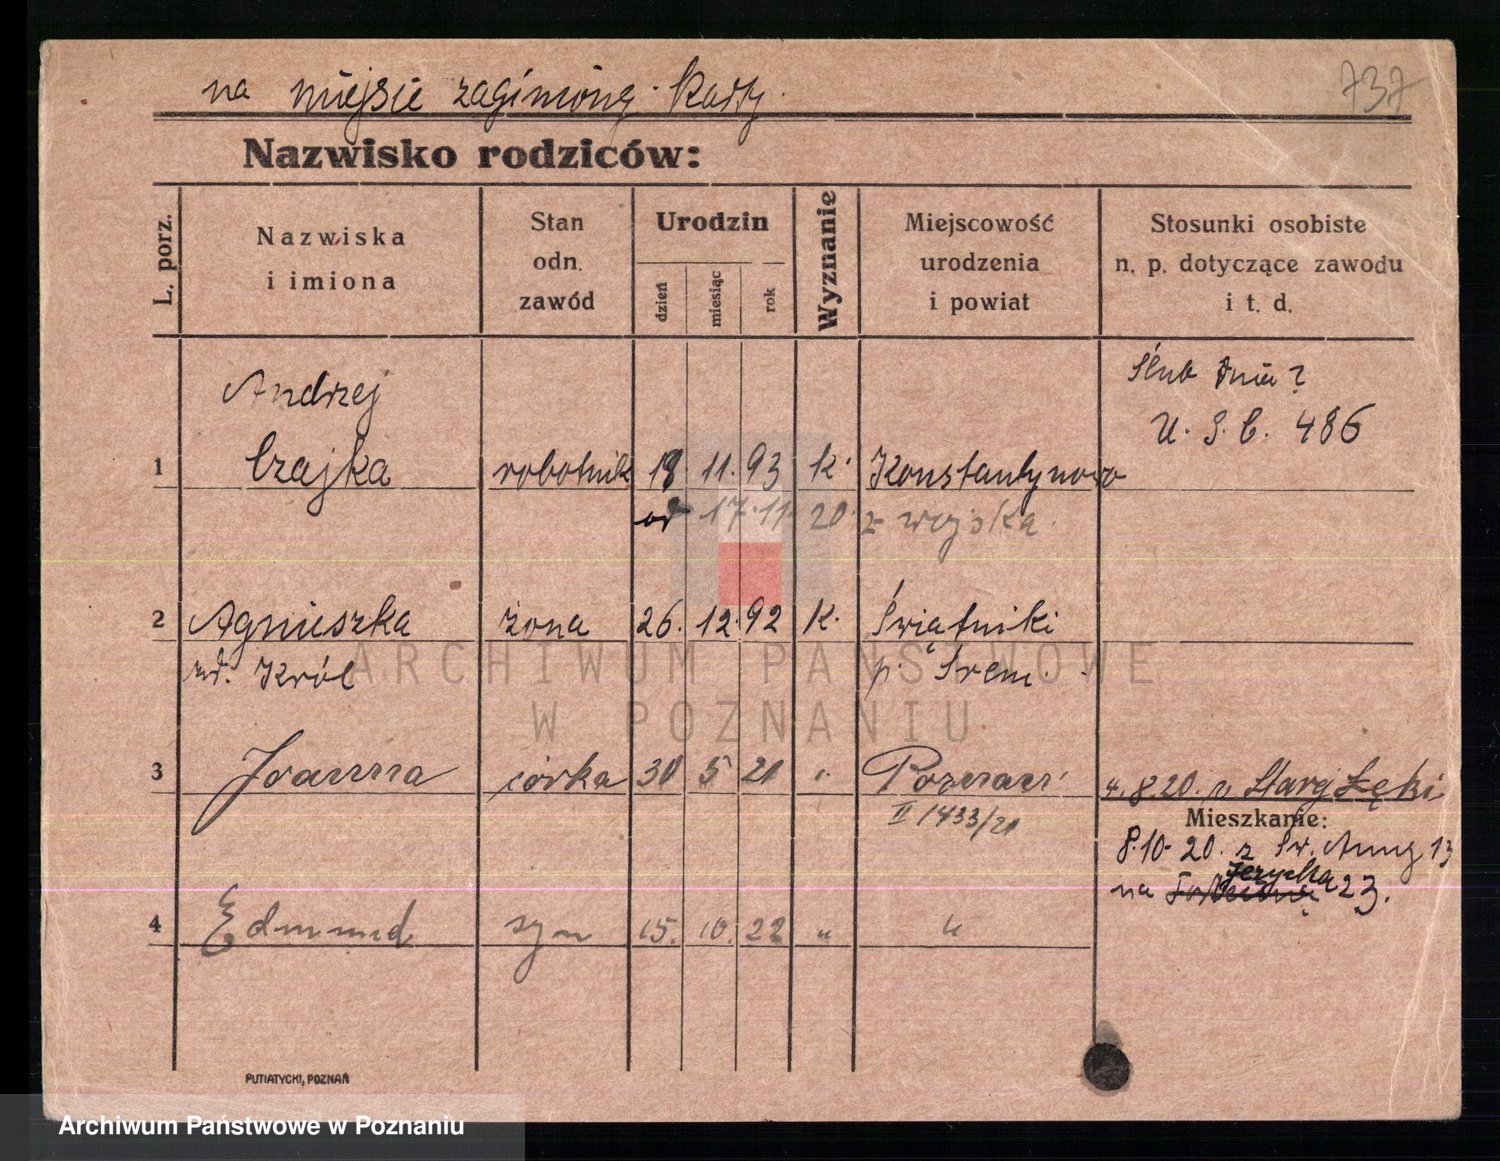 na miejsce zaginionej karty. 737
Nazwisko rodziców:
L. porz.
Nazwiska
i imiona
Stan
odn.
zawód
Urodzin
dzień
miesiąc
rok
Wyznanie
Miejscowość
urodzenia
i powiat
Stosunki osobiste
n. p. dotyczące zawodu
i t. d.
Ślub dnia ?
U. S. C. 486
Andrzej
1 Czajka robotnik 18 11. 93 k. Konstantynowo
od 17.11. 20. z wojska.
2 Agnieszka żona 26. 12. 92 K. Świątniki
ur. Król p. Śrem.
3 Joanna córka 30 5 20 " Poznań 4.8.20. Starą Łęki
II 1433/20
Mieszkanie:
8.10. 20. z Św. Anny 13
Jeżycka
na 23.
4 Edmund syn 15. 10. 22 " "
PUTIATYCKI, POZNAŃ
ARCHIWUM PAŃSTWOWE
W POZNANIU
Archiwum Państwowe w Poznaniu